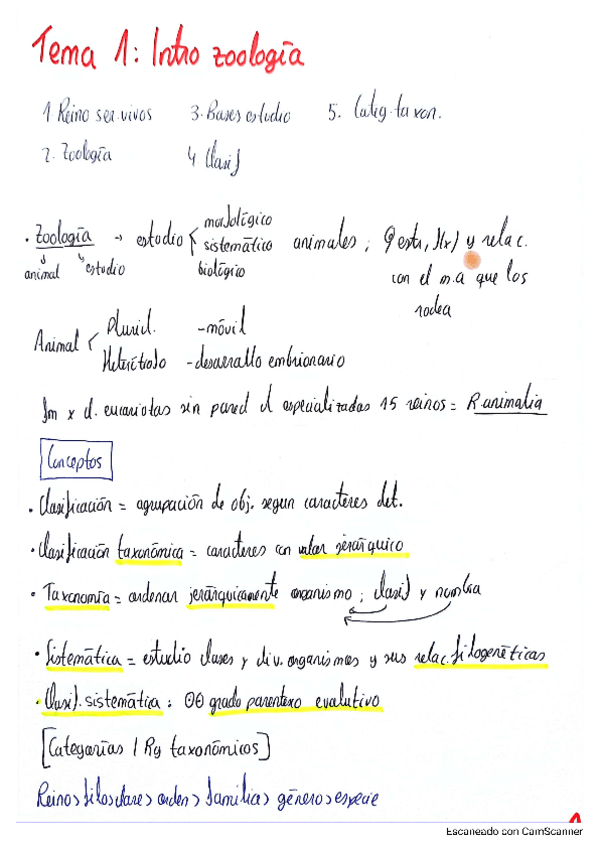 Tema 1: Intro zoología
1 Reino ser.vivos 3. Bases estudio 5. Categ. taxon.
2. Zoología 4 Clasif
morfológico
· Zoología → estudio sistemático animales; estr, f(x) y relac.
animal estudio biológico con el m.a que los
rodea
Pluricl. - móvil
Animal
Heterótrofo - desarrollo embrionario
fm x cl. eucariotas sin pared cl especializadas 15 reinos = R.animalia
Conceptos
· Clasificación = agrupación de obj. segun caracteres det.
· Clasificación taxonómica = caracteres con valor jerárquico
· Taxonomía = ordenar jerárquicamente organismo; clasif y nombra
· Sistemática = estudio clases y div. organismos y sus relac. filogenéticas
· Clasif. sistemática: grado parentexo evolutivo
[Categorías / Rg taxonómicos]
Reino > filo > clase > orden > familia > género > especie
1
Escaneado con CamScanner